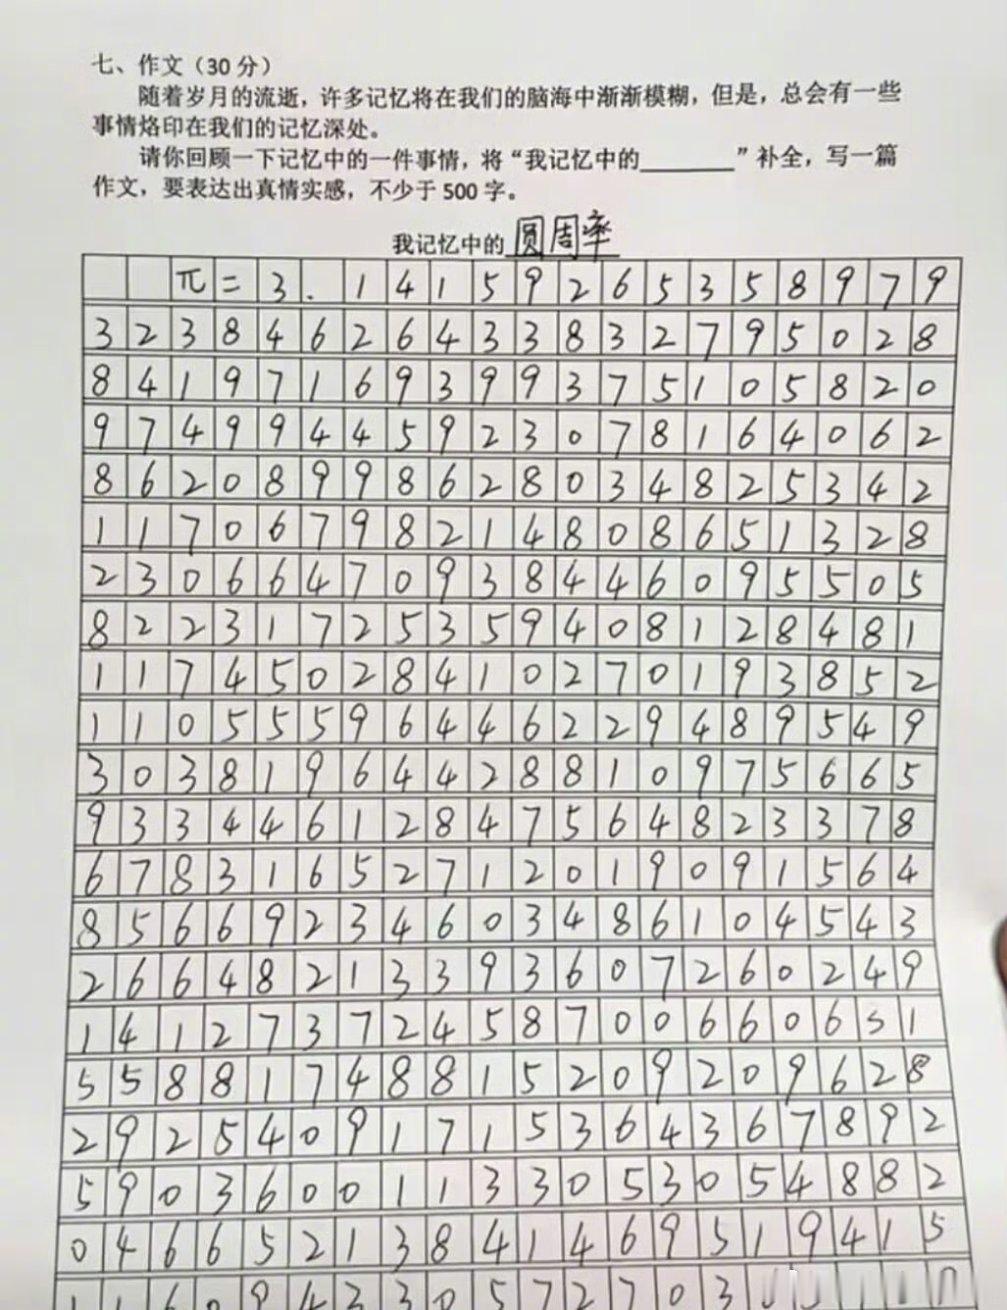 七、作文（30 分）
随着岁月的流逝，许多记忆将在我们的脑海中渐渐模糊，但是，总会有一些
事情烙印在我们的记忆深处。
请你回顾一下记忆中的一件事情，将“我记忆中的________”补全，写一篇
作文，要表达出真情实感，不少于 500 字。
我记忆中的圆周率
π=3.14159265358979
32384626433832795028
84197169399375105820
97499445923078164062
86208998628034825342
11706798214808651328
23066470938446095505
82231725359408128481
11745028410270193852
11055596446229489549
30381964428810975665
93344612847564823378
67831652712019091564
85669234603486104543
26648213393607260249
14127372458700660631
55881748815209209628
29254091715364367892
59036001133053054882
04665213841469519415
116094330572703